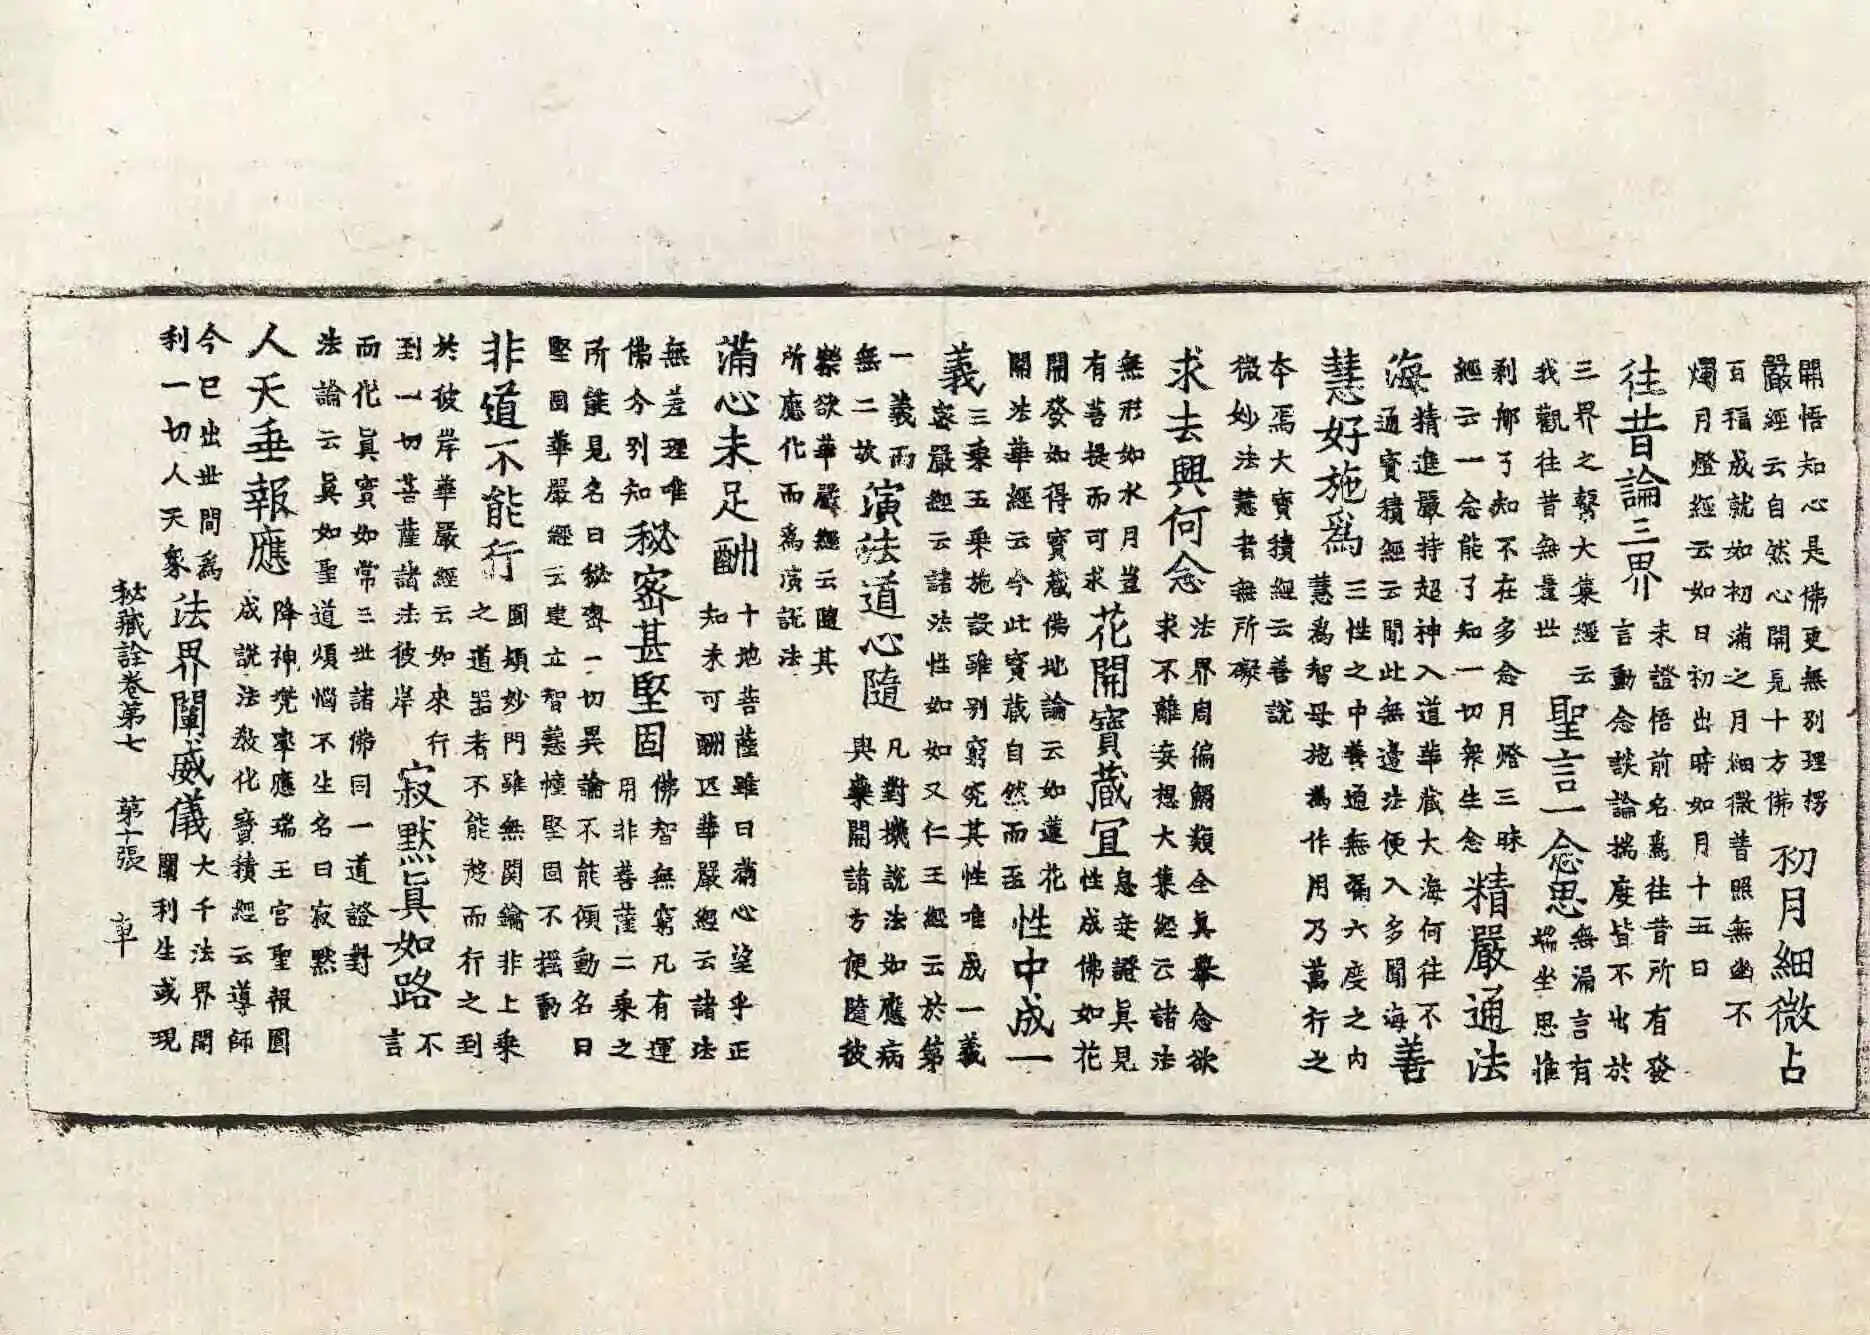 開悟知心是佛更無別理楞
嚴經云自然心開見十方佛
初月細微占
百福成就如初滿之月細微普照無幽不
燭月燈經云如日初出時如月十五日
往昔論三界
未證悟前名爲往昔所有發
言動念談論揣度皆不出於
三界之繫大集經云
我觀往昔無量世
聖言一念思
無漏言有
端坐思惟
剎那了知不在多念月燈三昧
經云一念能了知一切衆生念
精嚴通法
海
精進嚴持超神入道華藏大海何往不
通寶積經云聞此無邊法便入多聞海
善
慧好施爲
三性之中善通無漏六度之內
慧爲智母施爲作用乃萬行之
本焉大寶積經云善說
微妙法慧者無所礙
求去興何念
法界周徧觸類全眞舉念欲
求不離妄想大集經云諸法
無形如水月豈
有菩提而可求
花開寶藏宜
息妄證眞見
性成佛如花
開發如得寶藏佛地論云如蓮花
開法華經云今此寶藏自然而至
性中成一
義
三乘五乘施設雖別窮究其性唯成一義
密嚴經云諸法性如如又仁王經云於第
一義而
無二故
演法道心隨
凡對機說法如應病
與藥開諸方便隨彼
樂欲華嚴經云隨其
所應化而爲演說法
滿心未足酬
十地菩薩雖曰滿心望乎正
知未可酬匹華嚴經云諸法
無差理唯
佛今別知
秘密甚堅固
佛智無窮凡有運
用非菩薩二乘之
所能見名曰秘密一切異論不能傾動名曰
堅固華嚴經云建立智慧幢堅固不搖動
非道不能行
圓頓妙門雖無関鑰非上乘
之道器者不能趣而行之到
於彼岸華嚴經云如來行
到一切菩薩諸法彼岸
寂默眞如路
不
言
而化眞實如常三世諸佛同一道證對
法論云眞如聖道煩惱不生名曰寂默
人天垂報應
降神兜率應瑞王宮聖報圓
成說法教化寶積經云導師
今已出世間爲
利一切人天衆
法界闡威儀
大千法界開
闡利生或現
秘藏詮卷第七 第十張